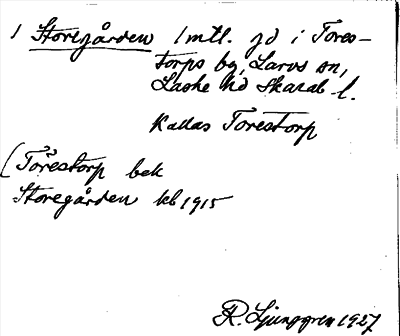 1 Storegården 1 mtl. gd i Tores-
torps by, Larvs sn,
Laske hd Skarab l.
Kallas Torestorp
[Torestorp bek
Storegården kb 1915
R. Ljunggren 1927